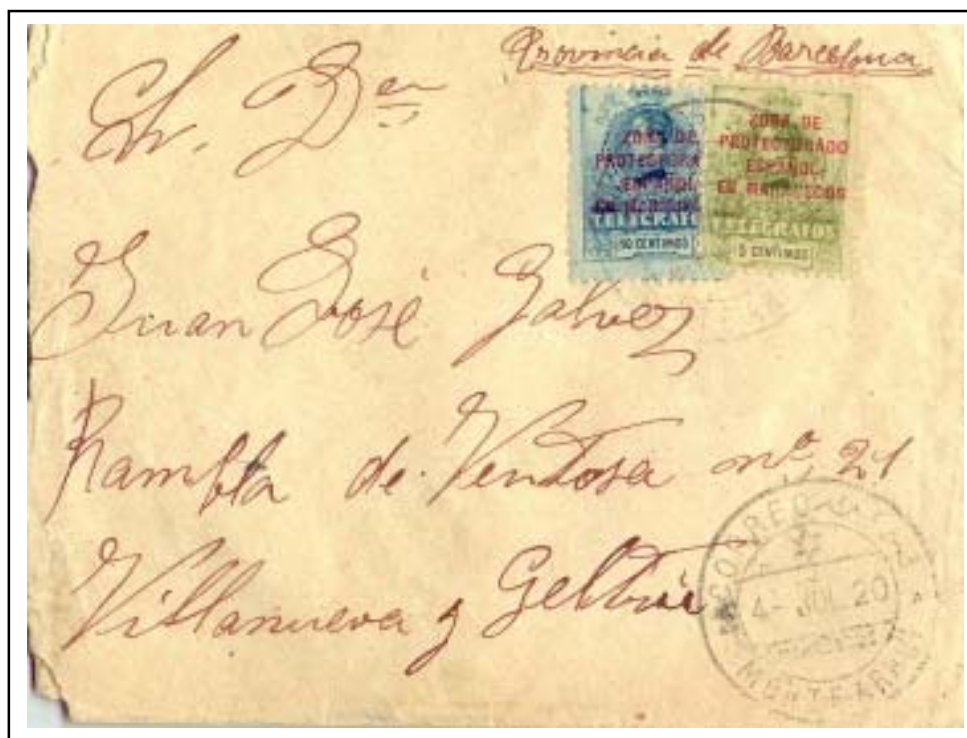 Provincia de Barcelona
Sr. Dn
ZONA DE PROTECTORADO ESPAÑOL EN MARRUECOS
TELEGRAFOS
10 CENTIMOS
ZONA DE
PROTECTORADO
ESPAÑOL
EN MARRUECOS
TELEGRAFOS
5 CENTIMOS
Juan José Galvez
Rambla de Ventosa nº 21
Villanueva y Geltrú
CORREO
4 - JUL. 20